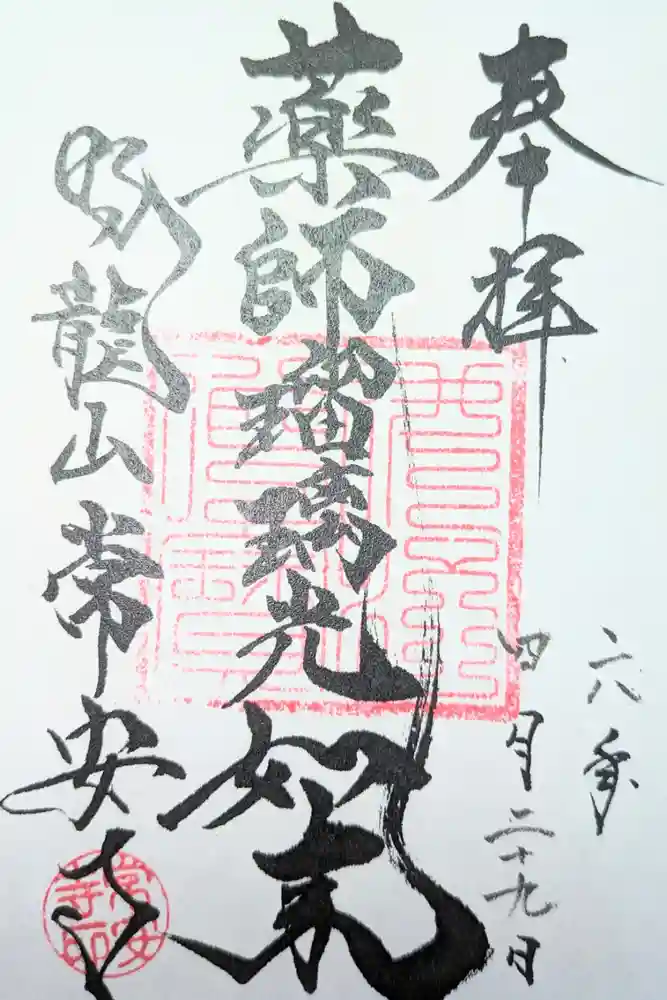 奉拝
六年
四月二十九日
薬師瑠璃光如来
臥龍山常安寺
常安寺印